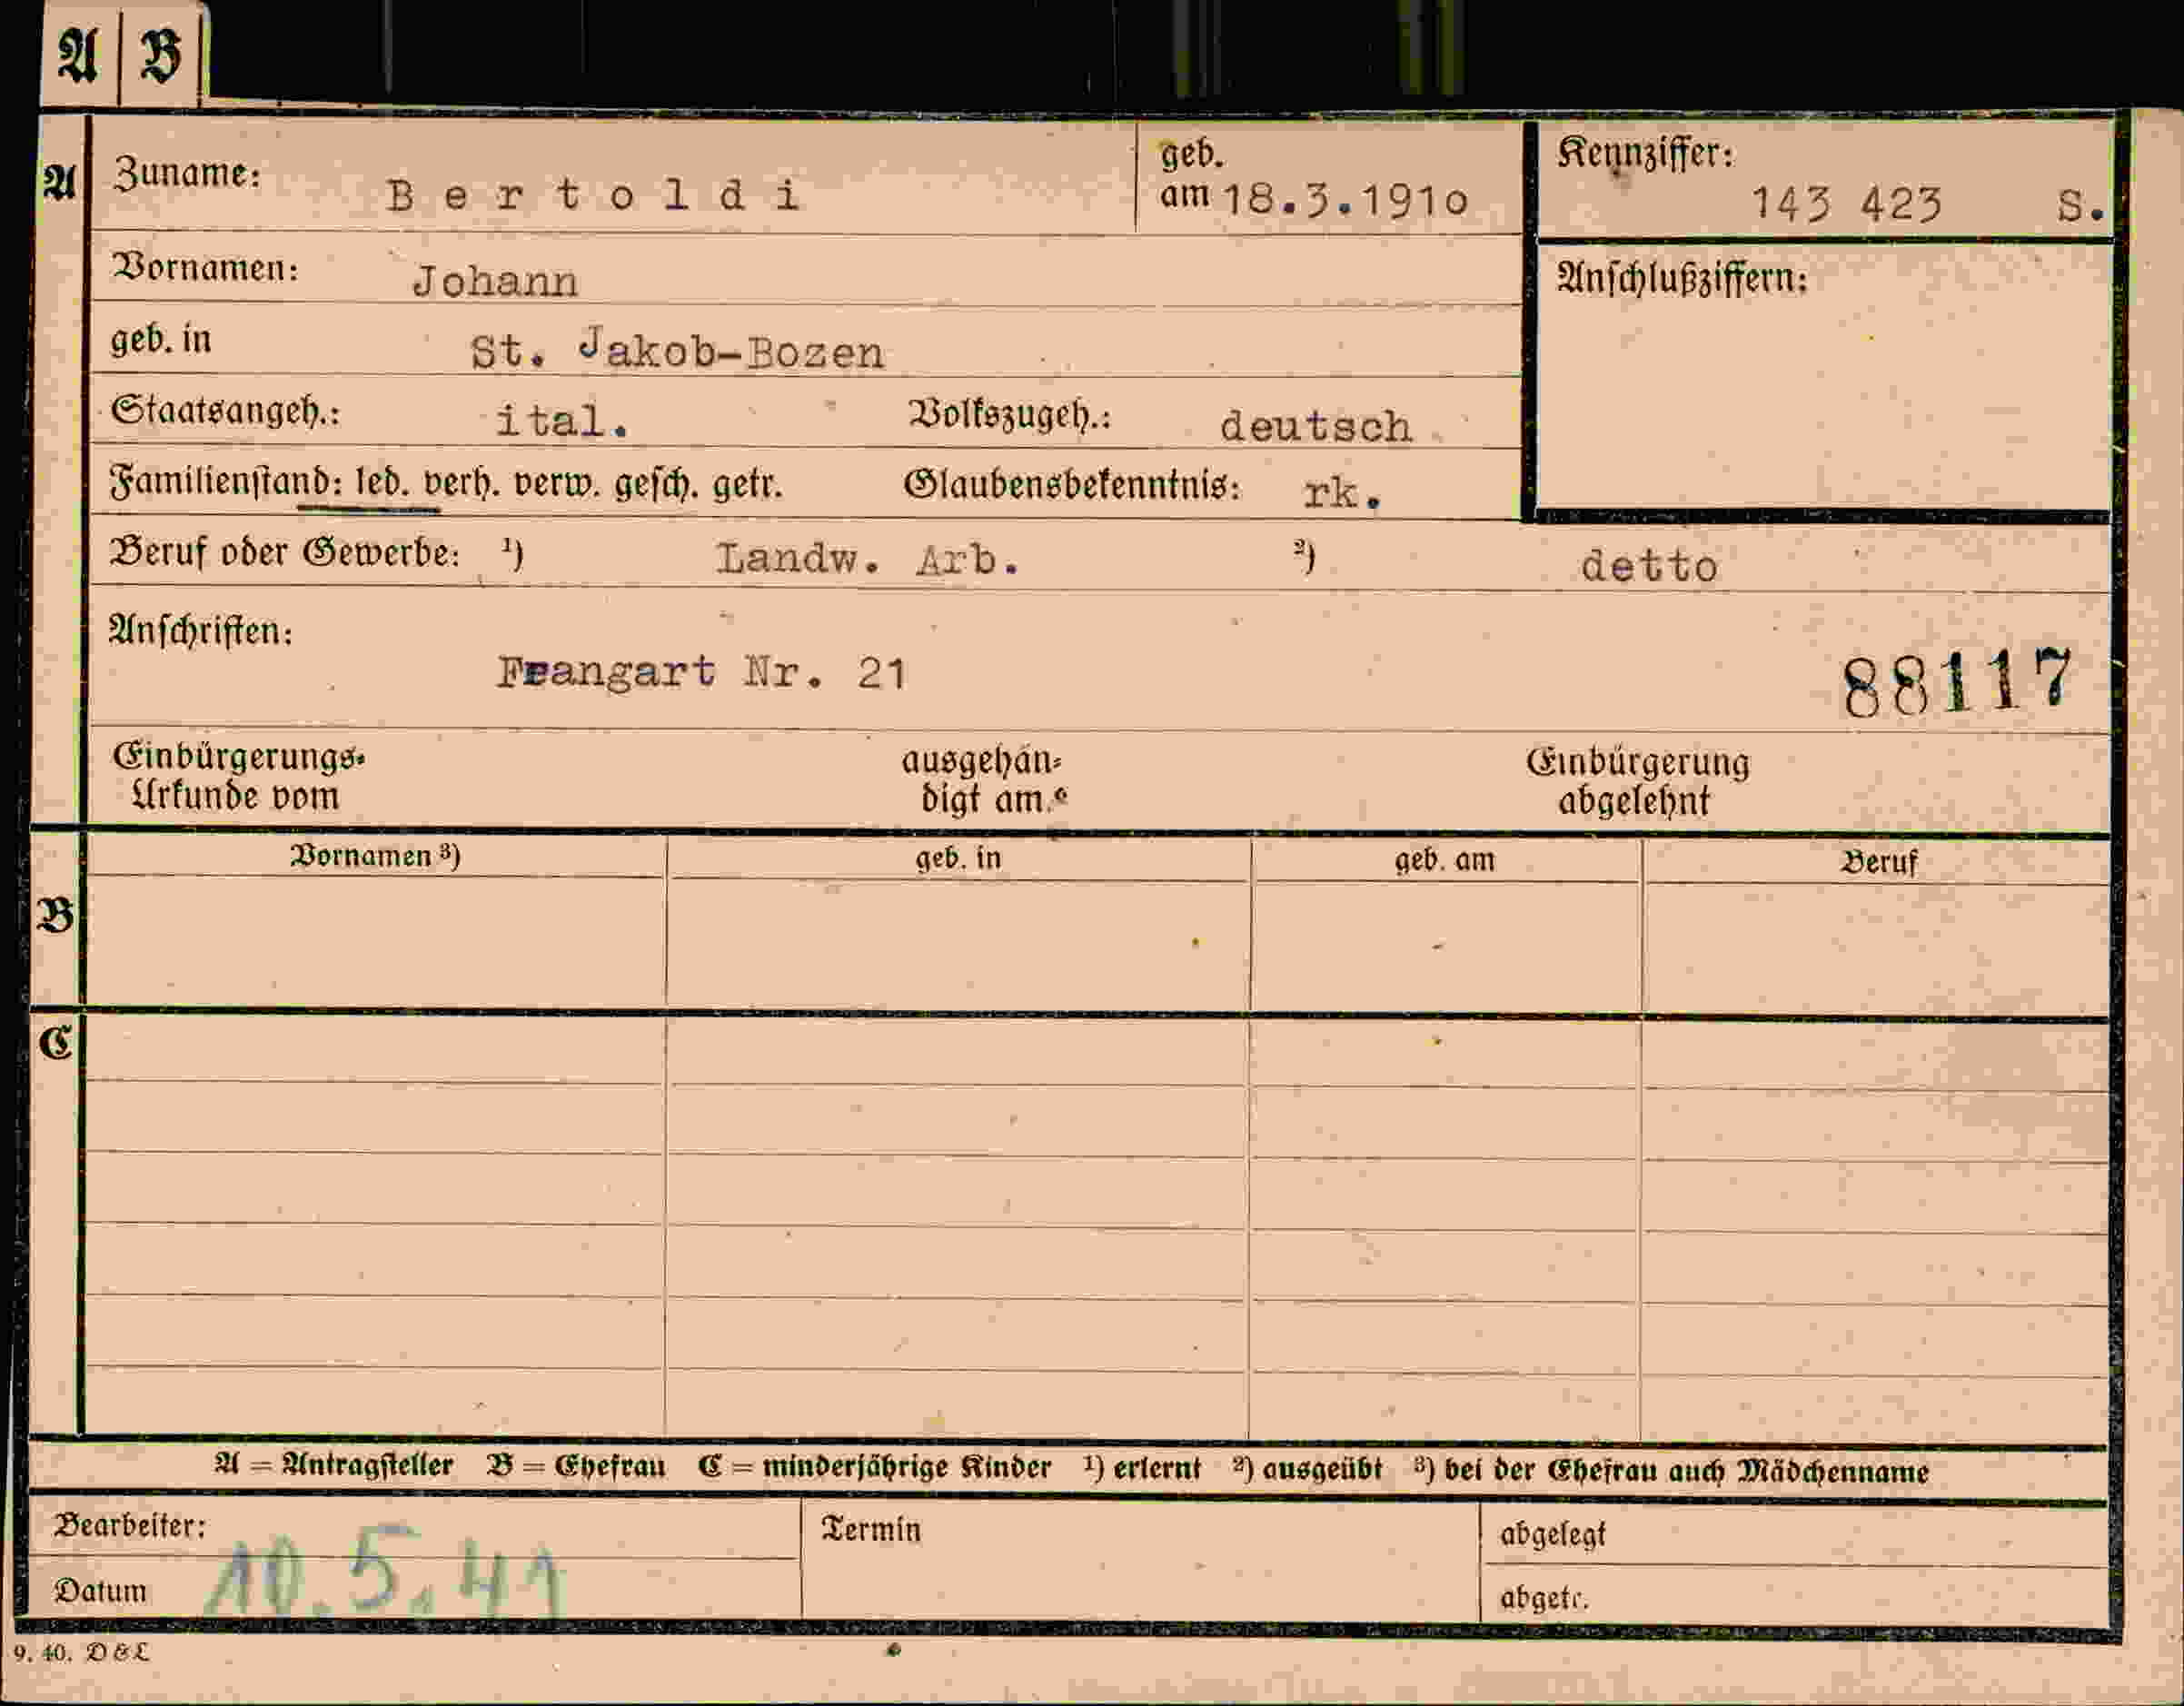 A B
A Zuname: Bertoldi geb. am 18.3.1910 Kennziffer: 143 423 S.
Vornamen: Johann Anschlußziffern:
geb. in St. Jakob-Bozen
Staatsangeh.: ital. Volkszugeh.: deutsch
Familienstand: led. verh. verw. gesch. getr. Glaubensbekenntnis: rk.
Beruf oder Gewerbe: ¹) Landw. Arb. ²) detto
Anschriften:
Frangart Nr. 21 88117
Einbürgerungs- ausgehän- Einbürgerung
Urkunde vom digt am abgelehnt
Vornamen ³) geb. in geb. am Beruf
B
C
A = Antragsteller B = Ehefrau C = minderjährige Kinder ¹) erlernt ²) ausgeübt ³) bei der Ehefrau auch Mädchenname
Bearbeiter: Termin abgelegt
Datum 10.5.41 abgetr.
9. 40. D & L